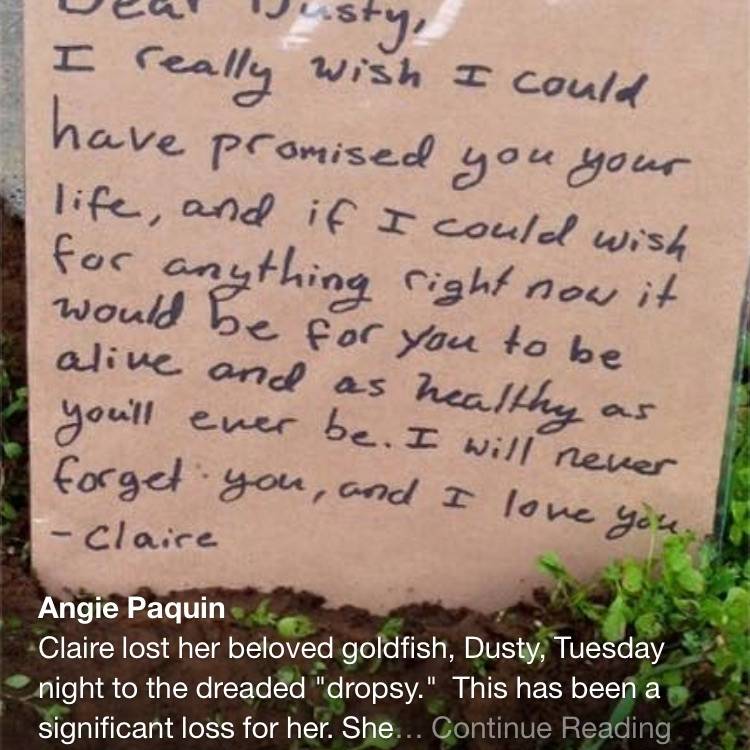 Dear Dusty,
I really wish I could
have promised you your
life, and if I could wish
for anything right now it
would be for you to be
alive and as healthy as
you'll ever be. I will never
forget you, and I love you.
- Claire
Angie Paquin
Claire lost her beloved goldfish, Dusty, Tuesday
night to the dreaded "dropsy." This has been a
significant loss for her. She... Continue Reading